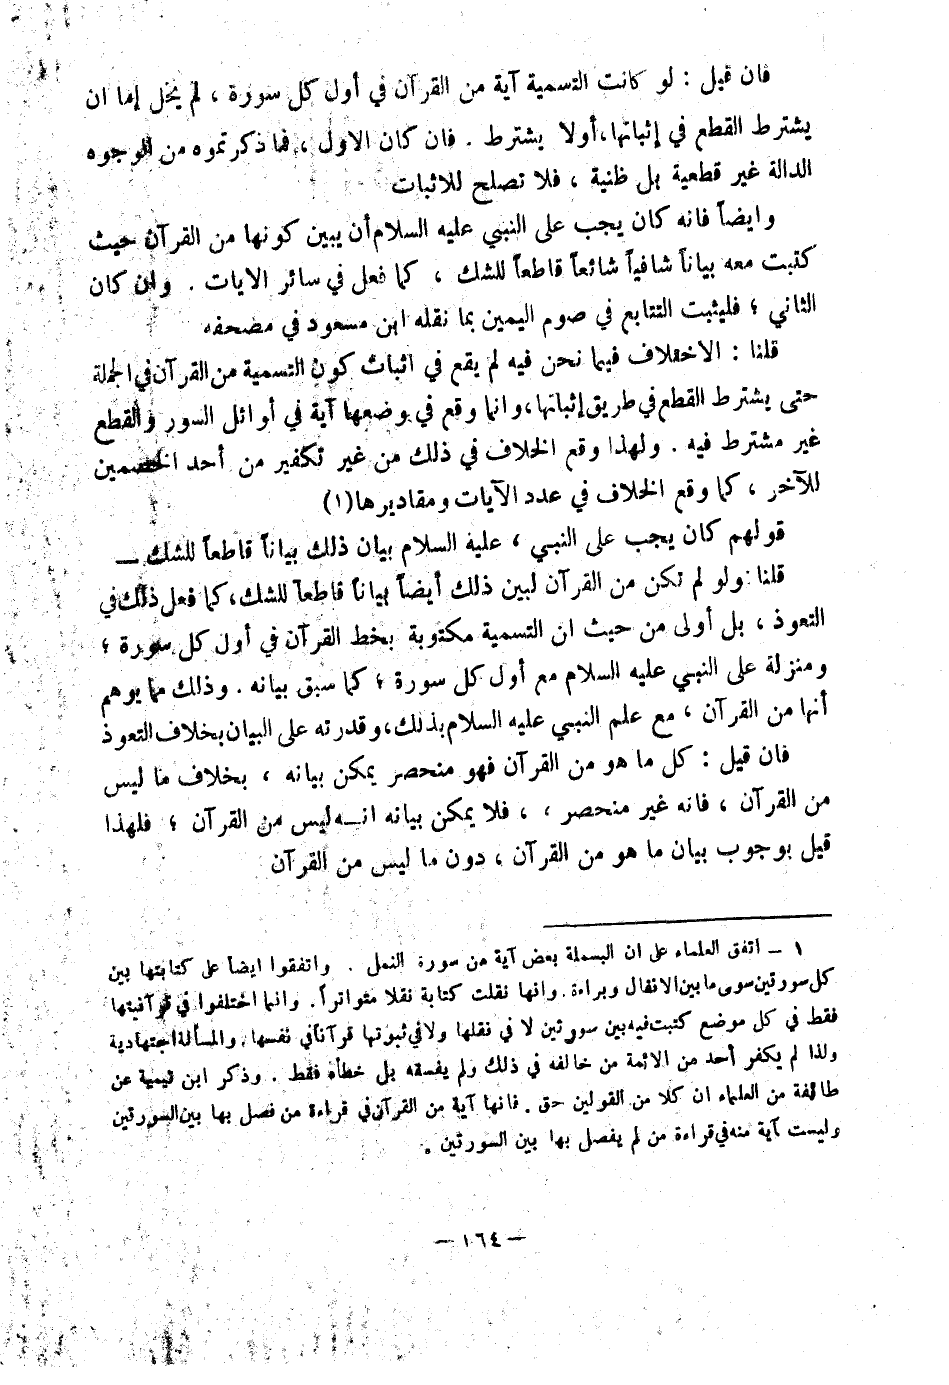 فان قيل : لو كانت التسمية آية من القرآن في أول كل سورة ، لم يخل إما ان
يشترط القطع في إثباتها، أولا يشترط . فان كان الاول ، فما ذكرتموه من الوجوه
الدالة غير قطعية بل ظنية ، فلا تصلح للاثبات
وايضاً فانه كان يجب على النبي عليه السلام أن يبين كونها من القرآن حيث
كتبت معه بياناً شافياً شائعاً قاطعاً للشك ، كما فعل في سائر الايات . وان كان
الثاني ؛ فليثبت التتابع في صوم اليمين بما نقله ابن مسعود في مصحفه
قلنا : الاختلاف فيما نحن فيه لم يقع في اثبات كون التسمية من القرآن في الجملة
حتى يشترط القطع في طريق إثباتها، وانما وقع في وضعها آية في أوائل السور والقطع
غير مشترط فيه . ولهذا وقع الخلاف في ذلك من غير تكفير من أحد الخصمين
للآخر ، كما وقع الخلاف في عدد الآيات ومقاديرها(١)
قولهم كان يجب على النبي ، عليه السلام بيان ذلك بياناً قاطعاً للشك —
قلنا : ولو لم تكن من القرآن لبين ذلك أيضاً بياناً قاطعاً للشك، كما فعل ذلك في
التعوذ ، بل أولى من حيث ان التسمية مكتوبة بخط القرآن في أول كل سورة ؛
ومنزلة على النبي عليه السلام مع أول كل سورة ؛ كما سبق بيانه . وذلك مما يوهم
أنها من القرآن ، مع علم النبي عليه السلام بذلك، وقدرته على البيان بخلاف التعوذ
فان قيل : كل ما هو من القرآن فهو منحصر يمكن بيانه ، بخلاف ما ليس
من القرآن ، فانه غير منحصر ، ، فلا يمكن بيانه انـه ليس من القرآن ؛ فلهذا
قيل بوجوب بيان ما هو من القرآن ، دون ما ليس من القرآن
١ — اتفق العلماء على ان البسملة بعض آية من سورة النمل . واتفقوا ايضاً على كتابتها بين
كل سورتين سوى ما بين الانفال وبراءة . وانها نقلت كتابة نقلا متواتراً. وانما اختلفوا في قرآنيتها
فقط في كل موضع كتبت فيه بين سورتين لا في نقلها ولا في ثبوتها قرآناً في نفسها. والمسألة اجتهادية
ولذا لم يكفر أحد من الائمة من خالفه في ذلك ولم يفسقه بل خطأه فقط . وذكر ابن تيمية عن
طائفة من العلماء ان كلا من القولين حق . فانها آية من القرآن في قراءة من فصل بها بين السورتين
وليست آية منه في قراءة من لم يفصل بها بين السورتين .
— ١٦٤ —